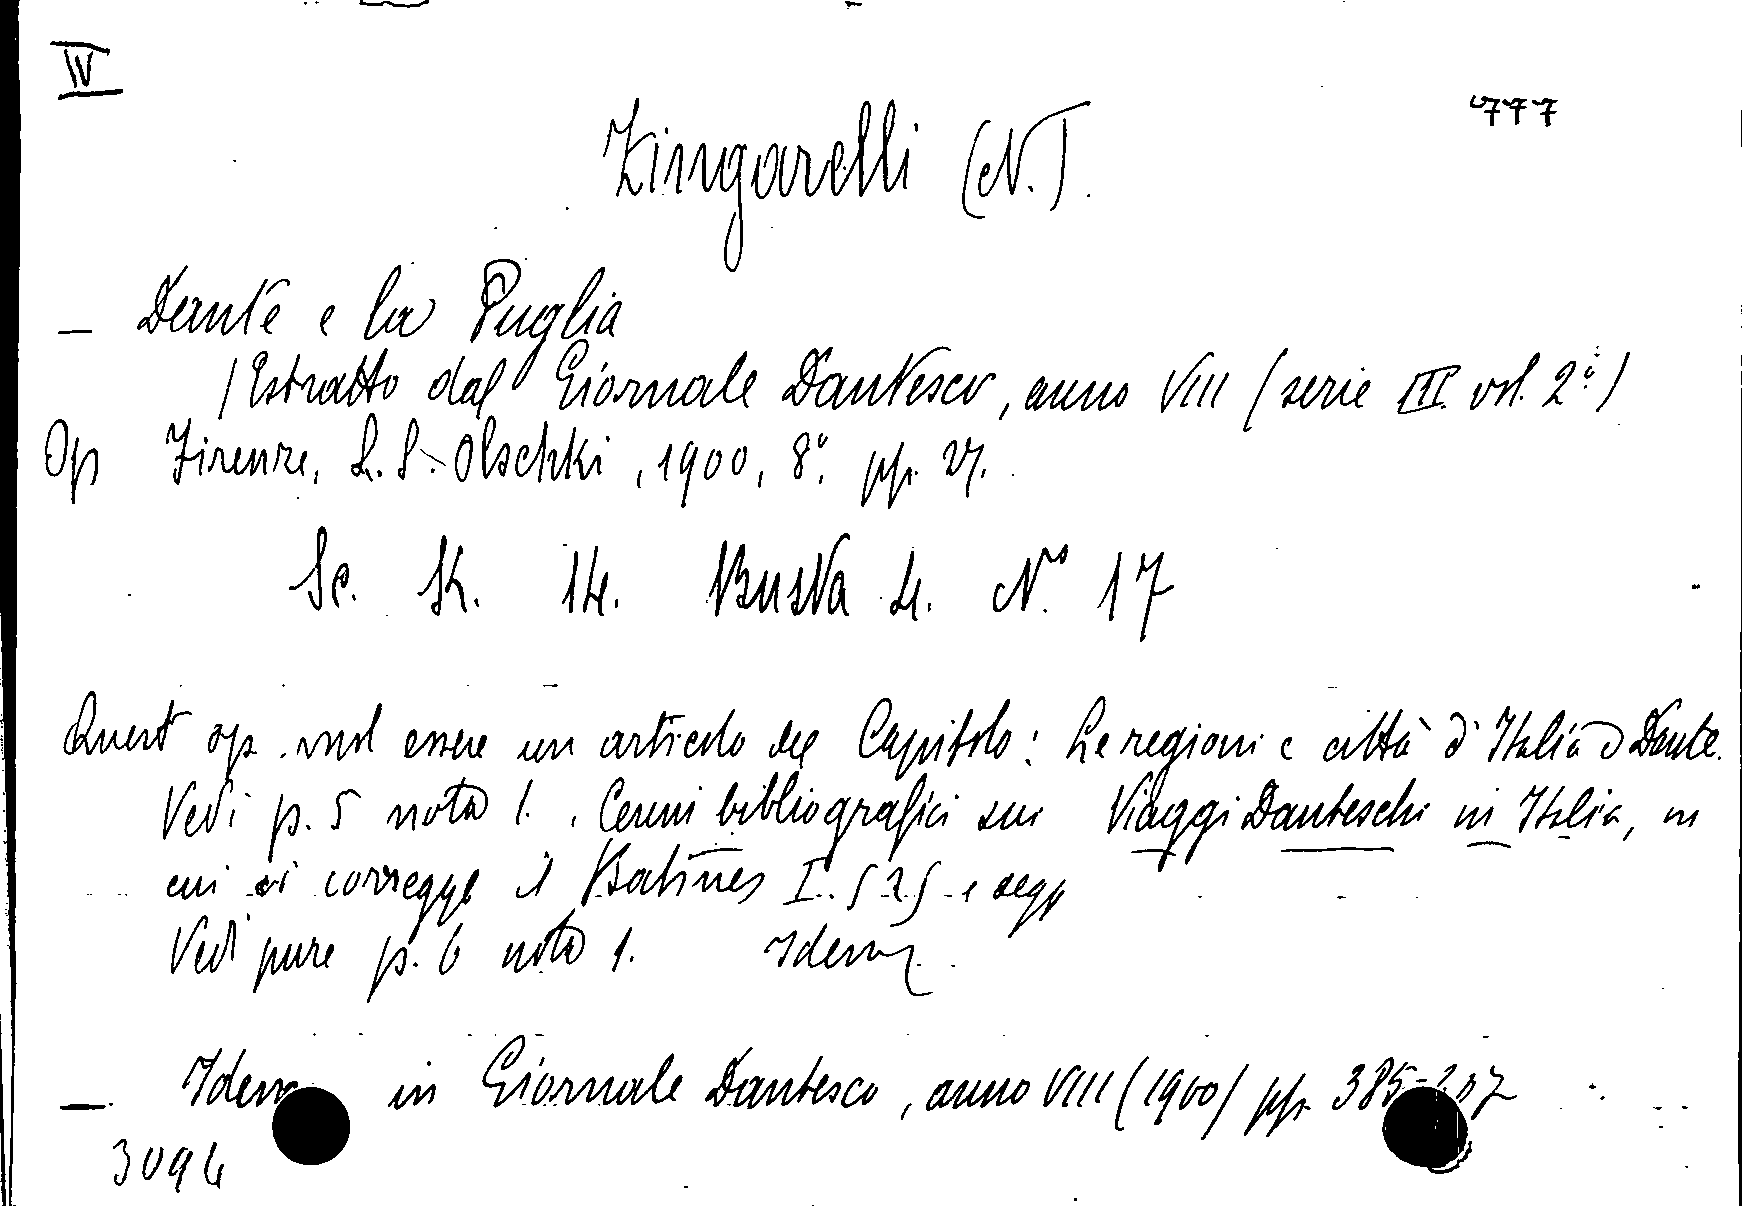 IV
777
Zingarelli (N.)
— Dante e la Puglia
(Estratto dal Giornale Dantesco, anno VIII (serie III vol. 2°)
Op Firenze, L. S. Olschki, 1900, 8° pp. 27.
Sc. K. 14. Busta 4. N° 17
Quest op. vuol essere un articolo del Capitolo: Le regioni e città d'Italia e Dante.
Vedi p. 5 nota 1. Cenni bibliografici sui Viaggi Danteschi in Italia, in
cui si corregge il Batines I. 525 e segg
Vedi pure p. 6 nota 1. Idem
— Idem in Giornale Dantesco, anno VIII (1900) pp. 385-
3094